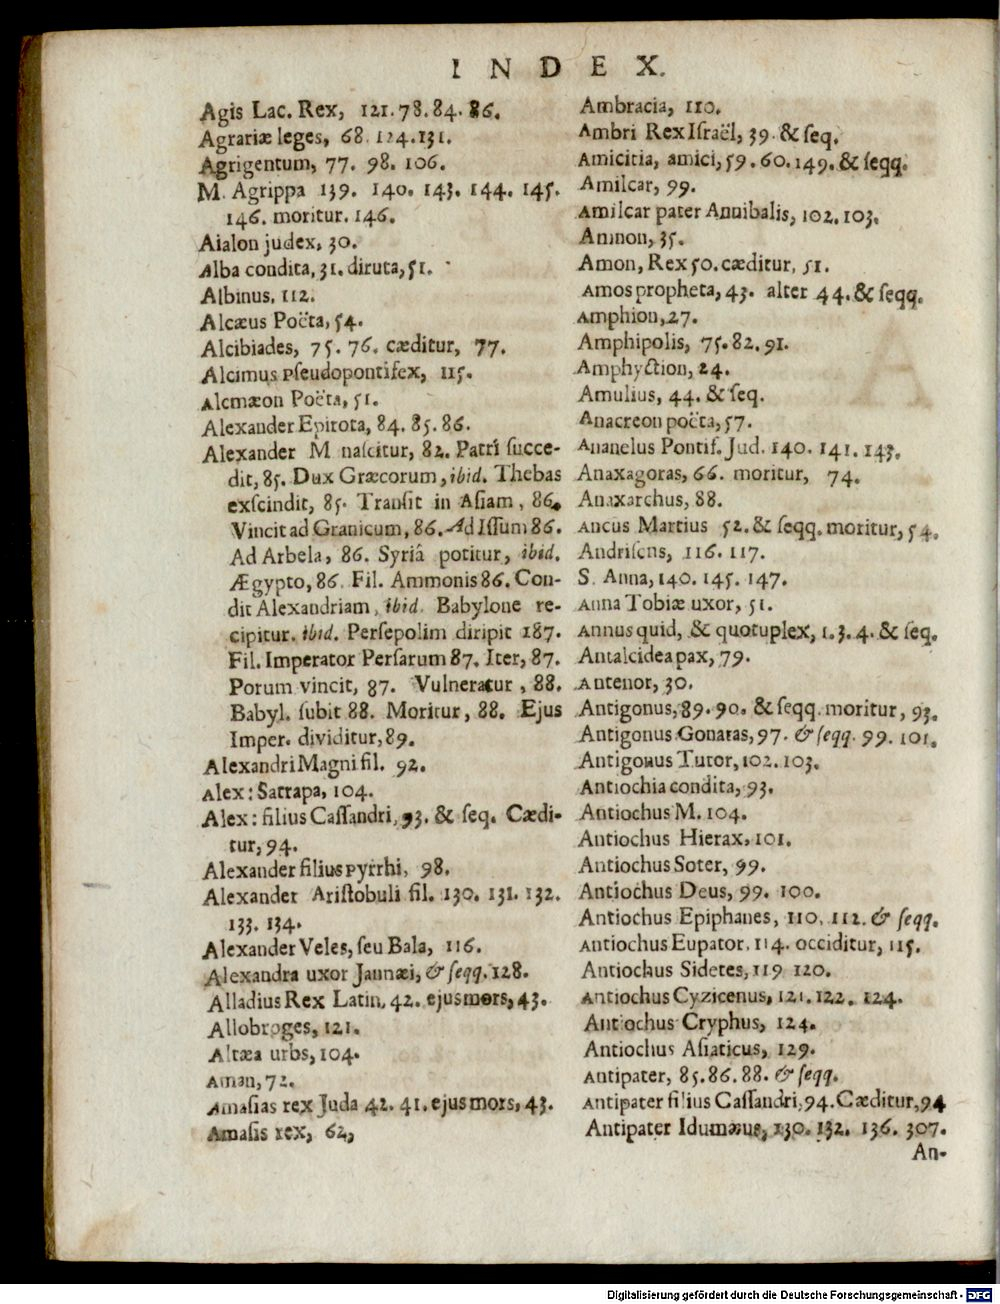 INDEX.
Agis Lac. Rex, 121. 78. 84. 86.
Agrariæ leges, 68. 124. 131.
Agrigentum, 77. 98. 106.
M. Agrippa 139. 140. 143. 144. 145.
146. moritur. 146.
Aialon judex, 30.
Alba condita, 31. diruta, 51.
Albinus, 112.
Alcæus Poëta, 54.
Alcibiades, 75. 76. cæditur, 77.
Alcimus Pseudopontifex, 115.
Alcmæon Poëta, 51.
Alexander Epirota, 84. 85. 86.
Alexander M nascitur, 82. Patri succe-
dit, 85. Dux Græcorum, ibid. Thebas
exscindit, 85. Transit in Asiam, 86.
Vincit ad Granicum, 86. Ad Issum 86.
Ad Arbela, 86. Syriâ potitur, ibid.
Ægypto, 86. Fil. Ammonis 86. Con-
dit Alexandriam, ibid. Babylone re-
cipitur. ibid. Persepolim diripit 187.
Fil. Imperator Persarum 87. Iter, 87.
Porum vincit, 87. Vulneratur, 88.
Babyl. subit 88. Moritur, 88. Ejus
Imper. dividitur, 89.
Alexandri Magni fil. 92.
Alex: Satrapa, 104.
Alex: filius Cassandri, 93. & seq. Cædi-
tur, 94.
Alexander filius Pyrrhi, 98.
Alexander Aristobuli fil. 130. 131. 132.
133. 134.
Alexander Veles, seu Bala, 116.
Alexandra uxor Jannæi, & seqq. 128.
Alladius Rex Latin. 42. ejus mors, 43.
Allobroges, 121.
Altæa urbs, 104.
Aman, 72.
Amasias rex Juda 42. 41. ejus mors, 43.
Amasis rex, 62,
Ambracia, 110.
Ambri Rex Israël, 39. & seq.
Amicitia, amici, 59. 60. 149. & seqq.
Amilcar, 99.
Amilcar pater Annibalis, 102. 103.
Ammon, 35.
Amon, Rex 50. cæditur, 51.
Amos propheta, 43. alter 44. & seqq.
Amphion, 27.
Amphipolis, 75. 82. 91.
Amphyction, 24.
Amulius, 44. & seq.
Anacreon poëta, 57.
Ananelus Pontif. Jud. 140. 141. 143.
Anaxagoras, 66. moritur, 74.
Anaxarchus, 88.
Ancus Martius 52. & seqq. moritur, 54.
Andriscns, 116. 117.
S. Anna, 140. 145. 147.
Anna Tobiæ uxor, 51.
Annus quid, & quotuplex, 1. 3. 4. & seq.
Antalcidea pax, 79.
Antenor, 30.
Antigonus, 89. 90. & seqq. moritur, 93.
Antigonus Gonatas, 97. & seqq. 99. 101.
Antigonus Tutor, 102. 103.
Antiochia condita, 93.
Antiochus M. 104.
Antiochus Hierax, 101.
Antiochus Soter, 99.
Antiochus Deus, 99. 100.
Antiochus Epiphanes, 110. 112. & seqq.
Antiochus Eupator. 114. occiditur, 115.
Antiochus Sidetes, 119 120.
Antiochus Cyzicenus, 121. 122. 124.
Antiochus Cryphus, 124.
Antiochus Asiaticus, 129.
Antipater, 85. 86. 88. & seqq.
Antipater filius Cassandri, 94. Cæditur, 94
Antipater Idumæus, 130. 132. 136. 307.
An-
Digitalisierung gefördert durch die Deutsche Forschungsgemeinschaft - DFG